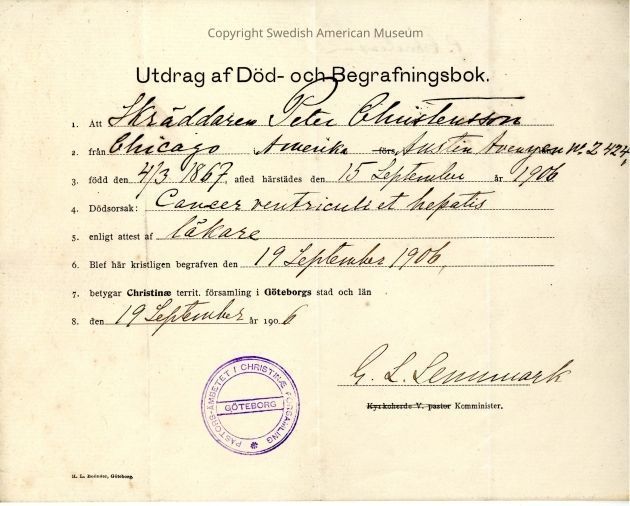 Copyright Swedish American Museum
Utdrag af Död- och Begrafningsbok.
1. Att Skräddaren Peter Christensson
2. från Chicago Amerika förs. Austin Avenyen No. 2 424,
3. född den 4/3 1867, afled härstädes den 15 September år 1906
4. Dödsorsak: Cancer ventriculi et hepatis
5. enligt attest af läkare
6. Blef här kristligen begrafven den 19 September 1906,
7. betygar Christinæ territ. församling i Göteborgs stad och län
8. den 19 September år 1906
G. L. Lennmark
Kyrkoherde V. pastor Komminister.
PASTORS-ÄMBETET I CHRISTINÆ FÖRSAMLING
GÖTEBORG
H. L. Bolinder, Göteborg.